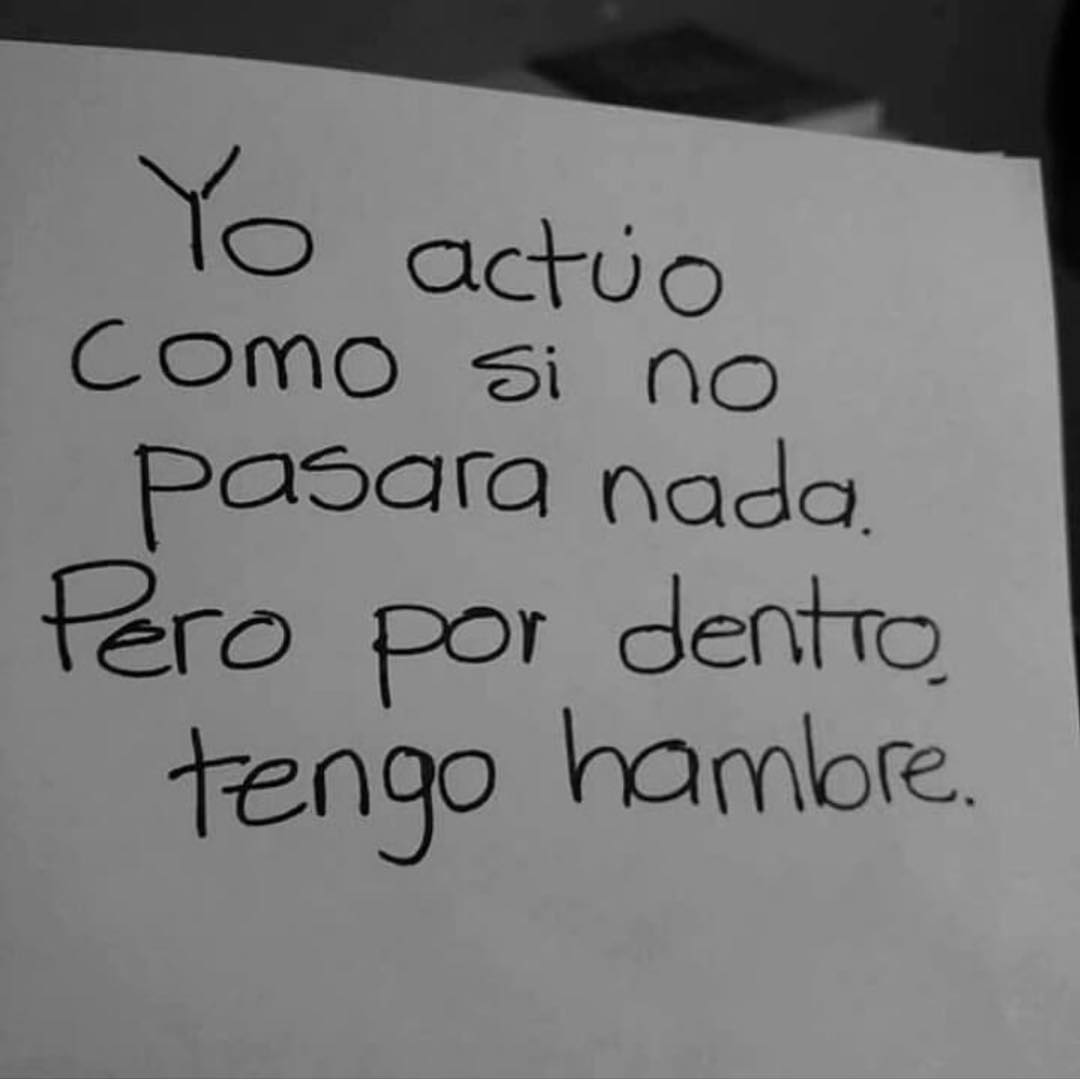 Yo actúo
como si no
pasara nada.
Pero por dentro,
tengo hambre.